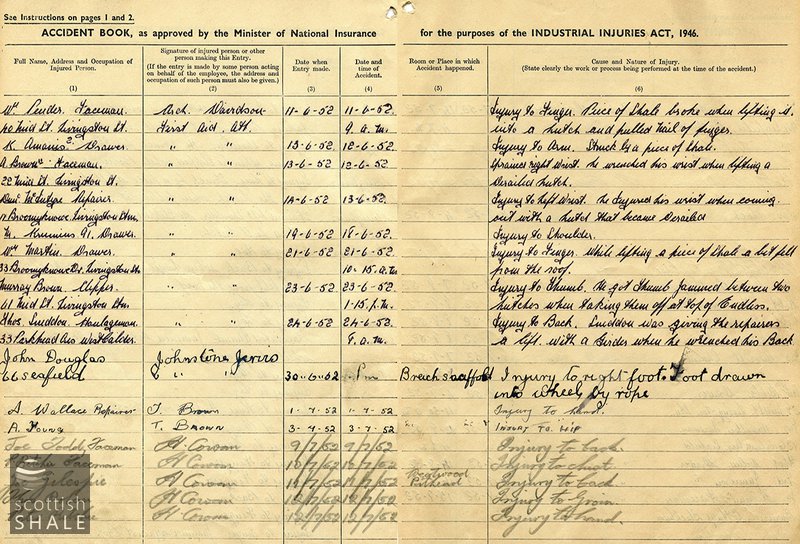 See Instructions on pages 1 and 2.
ACCIDENT BOOK, as approved by the Minister of National Insurance for the purposes of the INDUSTRIAL INJURIES ACT, 1946.
Full Name, Address and Occupation of Injured Person. (1)
Signature of injured person or other person making this Entry. (If the entry is made by some person acting on behalf of the employee, the address and occupation of such person must also be given.) (2)
Date when Entry made. (3)
Date and time of Accident. (4)
Room or Place in which Accident happened. (5)
Cause and Nature of Injury. (State clearly the work or process being performed at the time of the accident.) (6)
Wm Pender. Faceman. Rich. Davidson 11-6-52 11-6-52. Injury to Finger. Piece of Shale broke when lifting it
Mid St. Livingston St. First Aid Att. 9 a.m. into a hutch and pulled nail of finger.
Drawer " " 13-6-52 12-6-52 Injury to Arm. Struck by a piece of shale.
A. Brown Faceman. " " 13-6-52 12-6-52 Sprained right Wrist. He wrenched his wrist when lifting a
22 Mid St. Livingston St. Derailed hutch.
McIntyre Repairer " " 14-6-52 13-6-52. Injury to Left Wrist. He Injured his wrist when coming
Broomyknowe Livingston Stn. out with a hutch that became Derailed
Drawer. " " 19-6-52 18-6-52. Injury to Shoulder.
Wm Martin. Drawer. " " 21-6-52 21-6-52. Injury to Finger. While lifting a piece of Shale a bit fell
33 Broomyknowe Dr. Livingston Stn 10-15 a.m. from the roof.
Murray Brown. Clipper. " " 23-6-52 23-6-52. Injury to Thumb. He got Thumb Jammed between two
61 Mid St. Livingston Stn. 1-15 p.m. hutches when taking them off at top of Endless.
Thos. Luddon. Haulageman. " " 24-6-52 24-6-52. Injury to Back. Luddon was giving the repairers
33 Parkhead Ave West Calder. 9. a.m. a lift with a Girder when he wrenched his Back
John Douglas Johnstone
66 Seafield " " 30-6-52 pm scaffold Injury to right foot. Foot drawn
into wheel by rope
A. Wallace Repairer J. Brown 1-7-52 1-7-52 Injury to hand.
A. Young T. Brown 3-4-52 3-7-52 INJURY TO HIP
Joe Todd, Faceman H. Cowan 9/7/52 9/7/52 Injury to back
Faceman H. Cowan 10/7/52 10/7/52 Injury to chest
Gillespie H. Cowan 12/7/52 Pithead Injury to back
H. Cowan 12/7/52 Injury to Groin
H. Cowan 12/7/52 12/7/52 Injury to hand.
scottish
SHALE